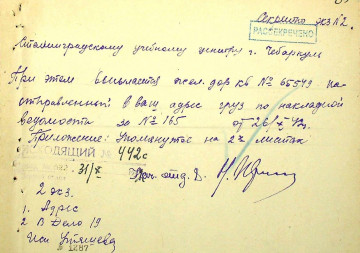 Секретно экз №2.
РАССЕКРЕЧЕНО
Сталинградскому учебному центру г. Чебаркуль
При этом высылается жел. дор. кв № 65549 на
отправленной в ваш адрес груз по накладной
ведомости за № 165 от 26/X 42г.
Приложение: Упомянутое на 2х листах
ХОДЯЩИЙ № 442с
31/X
Нач. отд.
2 экз.
1. Адрес
2 В Дело 19
Исп. Утяшева